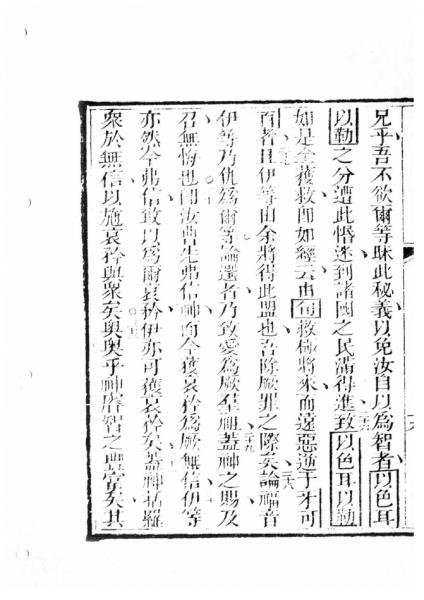 兄乎吾不欲爾等昧此秘義以免汝自以為智者以色耳
以勒之分遭此惛迷到諸國之民滿得進致以色耳以勒
如是全獲救即如經云由旬救極將來而遠惡逆于牙可
百者且伊等由余將得此盟也吾除厥罪之際矣論福音
伊等乃仇為爾等論選者乃致愛為厥祖蓋神之賜及
召無悔也即汝曹先弗信神而今獲哀矜為厥無信伊等
亦然今弗信致以為爾哀矜伊亦可獲哀矜矣蓋神括羅
眾於無信以施哀矜與眾矣奧奧乎神睿智之豐富矣其